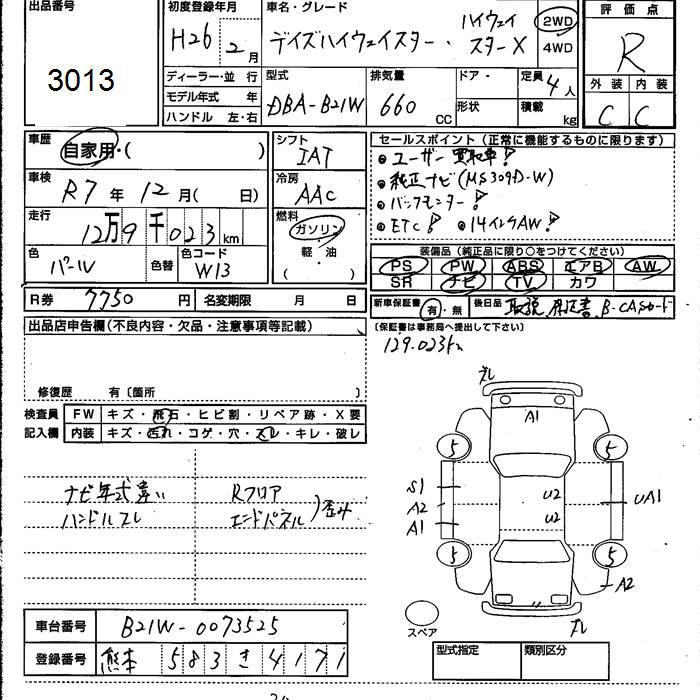 出品番号
3013
初度登録年月
H26 2月
車名・グレード
デイズハイウェイスター・ハイウェイスターX
2WD
4WD
評価点
R
外装 内装
C C
ディーラー・並行
モデル年式 年
ハンドル 左・右
型式
DBA-B21W
排気量
660 CC
ドア・形状
定員
4人
積載
kg
車歴
自家用・( )
シフト
IAT
セールスポイント(正常に機能するものに限ります)
ユーザー買取車!
純正ナビ(MS309D-W)
バックモニター!
ETC! 14インチAW!
車検
R7年12月( 日)
冷房
AAC
走行
12万9千023km
燃料
ガソリン
軽・油
( )
色
パール
色替
色コード
W13
装備品(純正品に限り○をつけてください)
PS PW ABS エアB AW
SR ナビ TV カワ
R券 7750円
名変期限 月 日
新車保証書 有・無
後日品 取説 保証書 B-CASカード
(保証書は事務局へ提出して下さい)
129.023km
出品店申告欄(不良内容・欠品・注意事項等記載)
修復歴 有〔箇所 〕
検査員記入欄
FW キズ・飛石・ヒビ割・リペア跡・X要
内装 キズ・汚れ・コゲ・穴・スレ・キレ・破レ
ナビ年式違い
ハンドルスレ
Rフロア
エンドパネル
歪み
ズレ
A1
5 5
S1
A2
A1
U2
U2
UA1
5 5
A2
スペア
車台番号 B21W-0073525
登録番号 熊本 583 き 4171
型式指定
類別区分